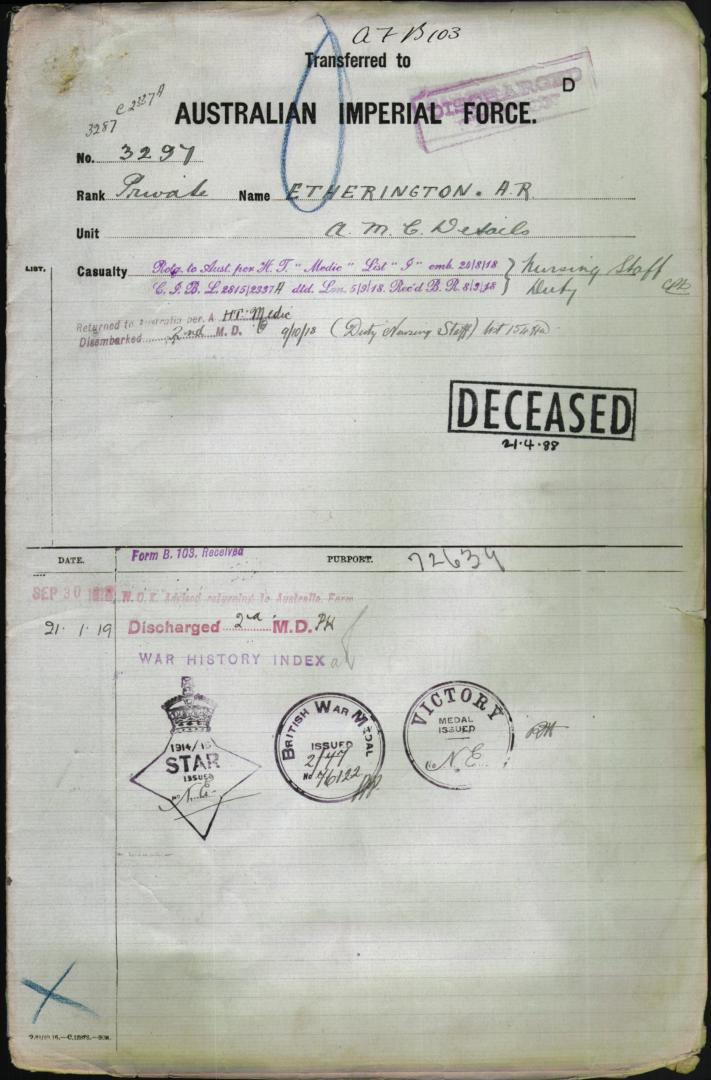 A F B 103
Transferred to
DISCHARGED
D
C 2337A
3287
AUSTRALIAN IMPERIAL FORCE.
No. 3297
Rank Private Name ETHERINGTON. A.R.
Unit A. M. C. Details
LIST.
Casualty Retg. to Aust. per H. T. "Medic" List "I" emb. 24/8/18 } Nursing Staff
C. I. B. L. 2815/2337A dtd. Lon. 5/9/18. Rec'd B. R. 8/9/18 } Duty
Returned to Australia per. A HT. Medic
Disembarked 2nd M. D. 9/10/18 (Duty Nursing Staff)
DECEASED
21.4.88
DATE.
Form B. 103. Received
PURPORT.
72639
SEP 30 N.O.K. Advised returning to Australia Form
21. 1. 19 Discharged 2nd M.D. PH
WAR HISTORY INDEX
1914/15
STAR
ISSUED
No N.E.
BRITISH WAR MEDAL
ISSUED
2/47
No 76122
VICTORY
MEDAL
ISSUED
No N.E.